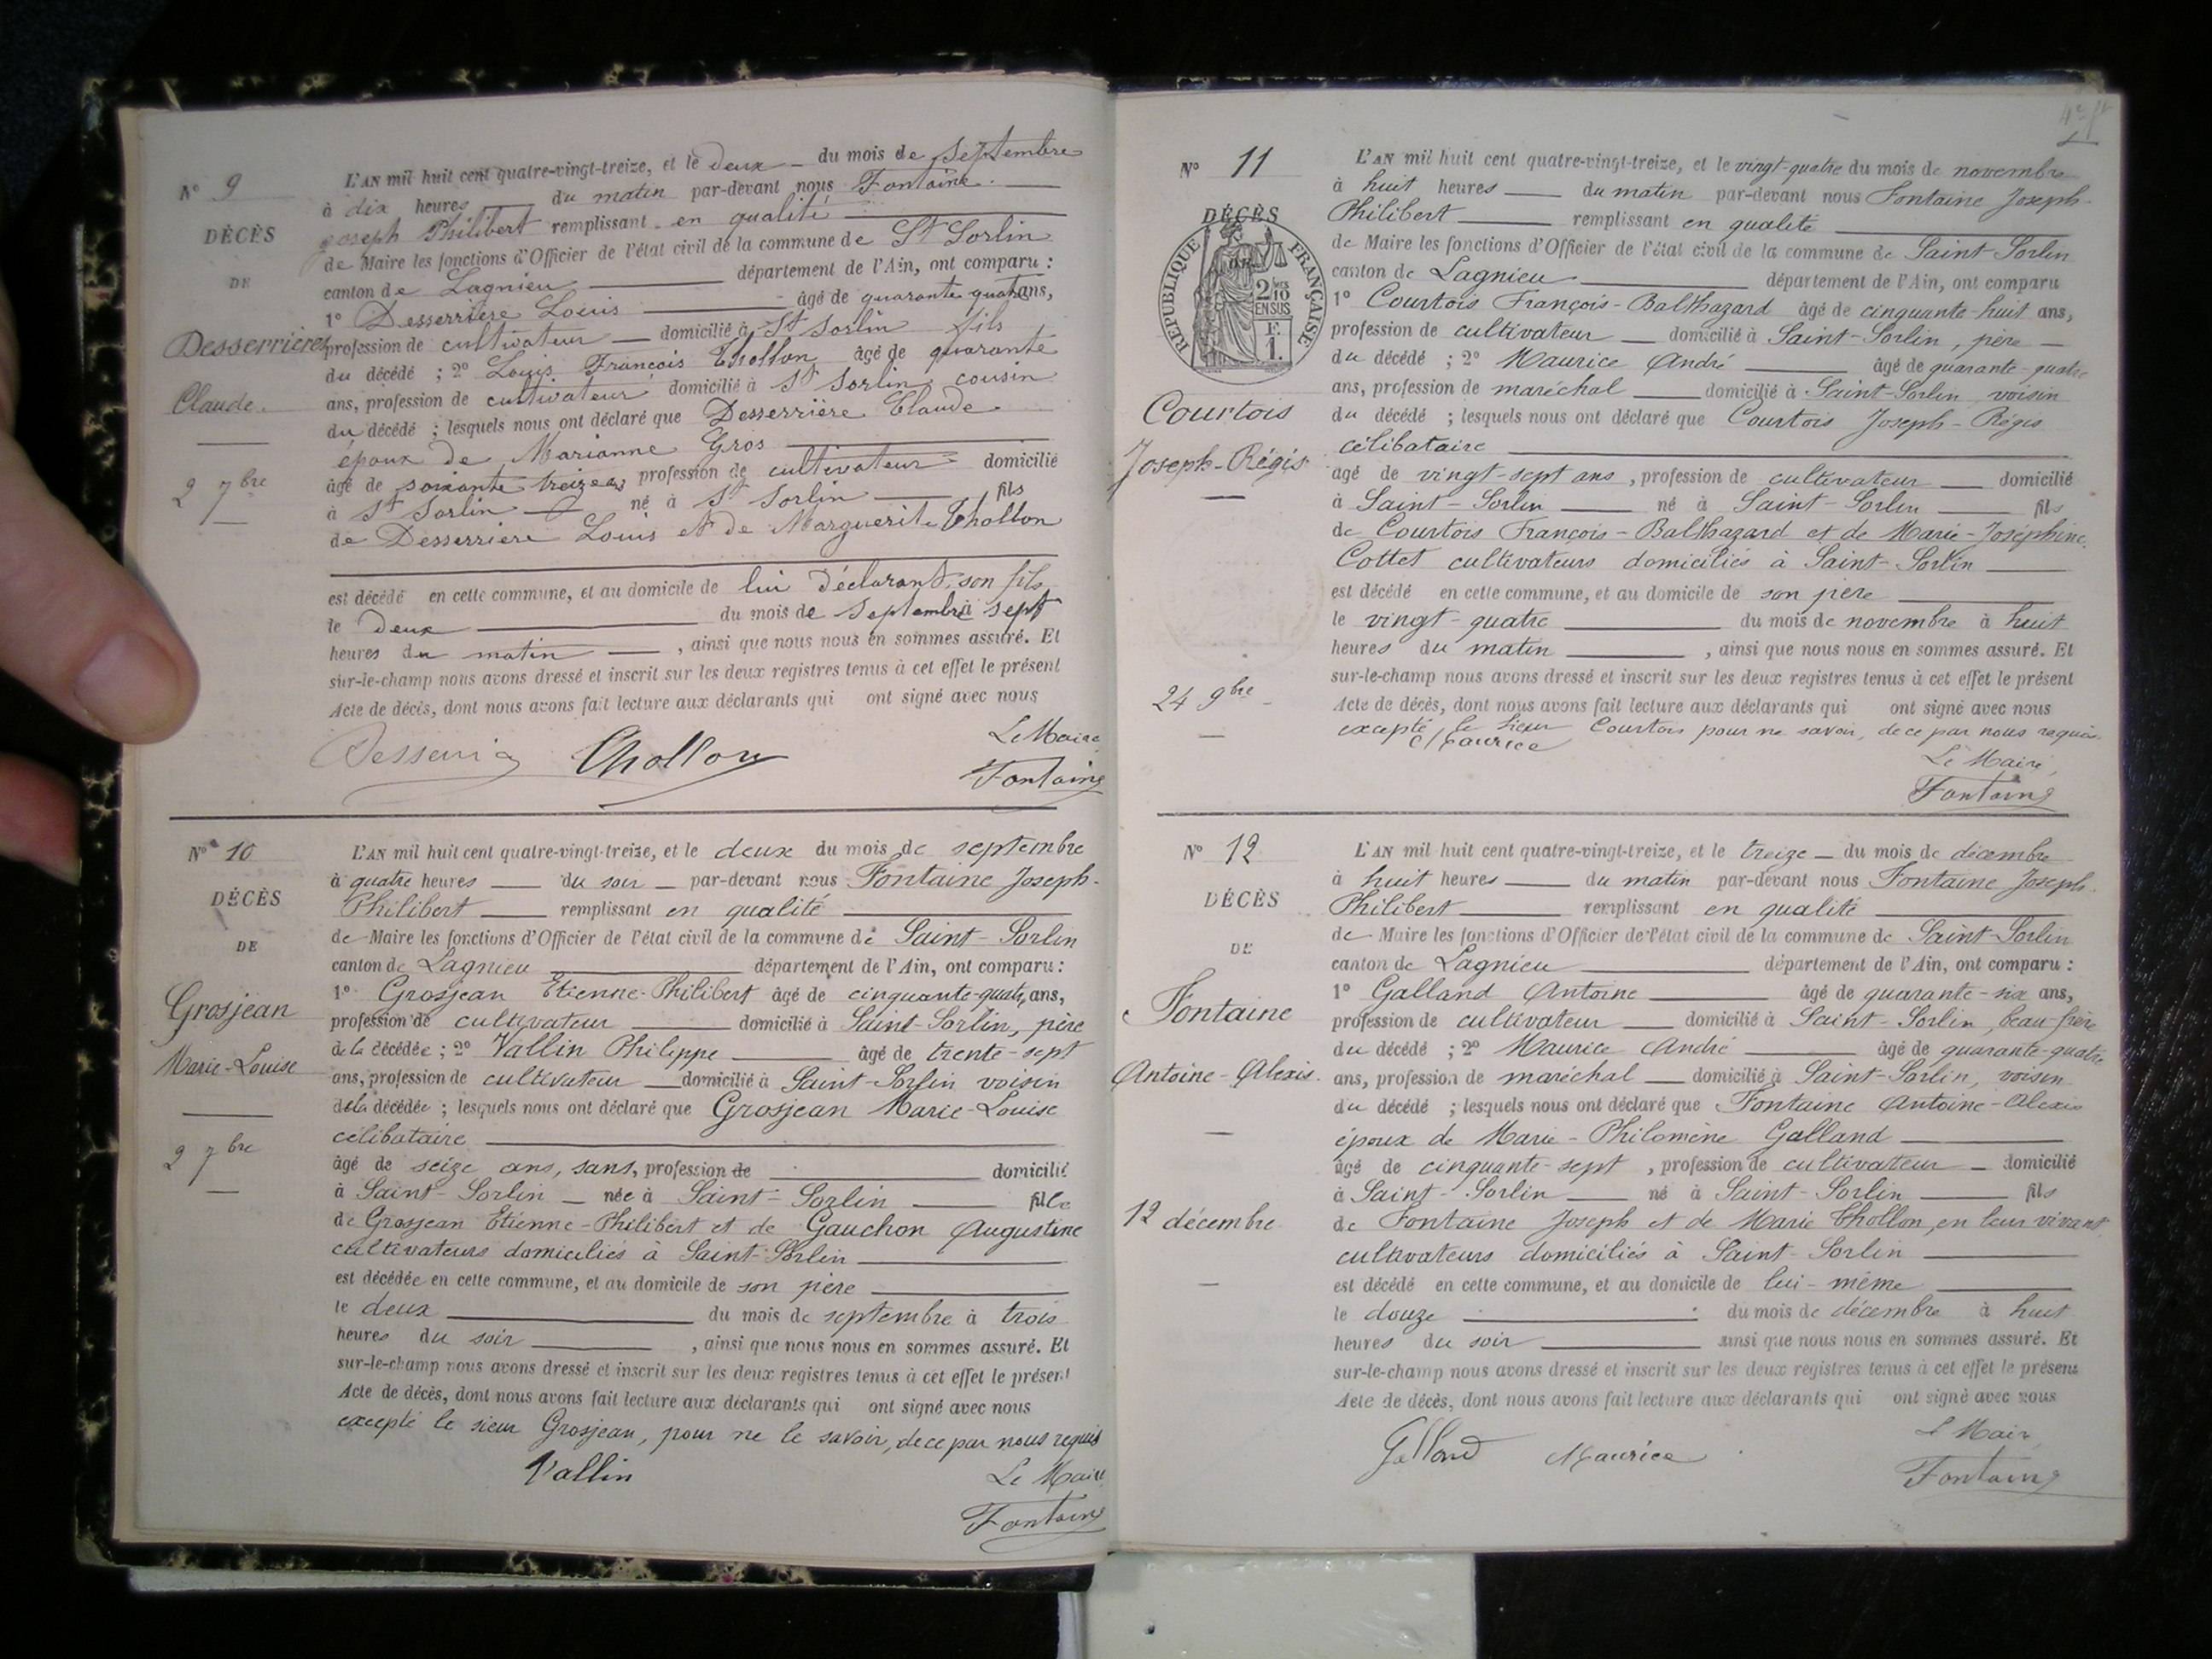 N° 9
DÉCÈS
DE
Desserrière
Claude.
2 7bre
L'AN mil huit cent quatre-vingt-treize, et le deux du mois de septembre
à dix heures du matin par-devant nous Fontaine
Joseph Philibert remplissant en qualité
de Maire les fonctions d'Officier de l'état civil de la commune de St Sorlin
canton de Lagnieu département de l'Ain, ont comparu :
1° Desserrière Louis âgé de quarante quatre ans,
profession de cultivateur domicilié à St Sorlin fils
du décédé ; 2° Louis François Thollon âgé de quarante
ans, profession de cultivateur domicilié à St Sorlin cousin
du décédé ; lesquels nous ont déclaré que Desserrière Claude
époux de Marianne Gros
âgé de soixante treize ans profession de cultivateur domicilié
à St Sorlin né à St Sorlin fils
de Desserriere Louis et de Marguerite Thollon
est décédé en cette commune, et au domicile de lui déclarant, son fils
le deux du mois de septembre à sept
heures du matin , ainsi que nous nous en sommes assuré. Et
sur-le-champ nous avons dressé et inscrit sur les deux registres tenus à cet effet le présent
Acte de décès, dont nous avons fait lecture aux déclarants qui ont signé avec nous
Thollon
Le Maire
Fontaine
N° 10
DÉCÈS
DE
Grosjean
Marie-Louise
2 7bre
L'AN mil huit cent quatre-vingt-treize, et le deux du mois de septembre
à quatre heures du soir par-devant nous Fontaine Joseph-
Philibert remplissant en qualité
de Maire les fonctions d'Officier de l'état civil de la commune de Saint-Sorlin
canton de Lagnieu département de l'Ain, ont comparu :
1° Grosjean Etienne-Philibert âgé de cinquante-quatre ans,
profession de cultivateur domicilié à Saint-Sorlin, père
de la décédée ; 2° Vallin Philippe âgé de trente-sept
ans, profession de cultivateur domicilié à Saint-Sorlin voisin
de la décédée ; lesquels nous ont déclaré que Grosjean Marie-Louise
célibataire
âgé de seize ans, sans, profession de domicilié
à Saint-Sorlin née à Saint-Sorlin fille
de Grosjean Etienne-Philibert et de Gauchon Augustine
cultivateurs domiciliés à Saint-Sorlin
est décédée en cette commune, et au domicile de son père
le deux du mois de septembre à trois
heures du soir , ainsi que nous nous en sommes assuré. Et
sur-le-champ nous avons dressé et inscrit sur les deux registres tenus à cet effet le présent
Acte de décès, dont nous avons fait lecture aux déclarants qui ont signé avec nous
excepté le sieur Grosjean, pour ne le savoir, de ce par nous requis
Vallin
Le Maire
Fontaine
N° 11
DÉCÈS
RÉPUBLIQUE FRANÇAISE
2 10
EN SUS
F.
1.
Courtois
Joseph-Régis
24 9bre
L'AN mil huit cent quatre-vingt-treize, et le vingt-quatre du mois de novembre
à huit heures du matin par-devant nous Fontaine Joseph-
Philibert remplissant en qualité
de Maire les fonctions d'Officier de l'état civil de la commune de Saint-Sorlin
canton de Lagnieu département de l'Ain, ont comparu
1° Courtois François-Balthazard âgé de cinquante-huit ans,
profession de cultivateur domicilié à Saint-Sorlin, père
du décédé ; 2° Maurice André âgé de quarante-quatre
ans, profession de maréchal domicilié à Saint-Sorlin voisin
du décédé ; lesquels nous ont déclaré que Courtois Joseph-Régis
célibataire
âgé de vingt-sept ans, profession de cultivateur domicilié
à Saint-Sorlin né à Saint-Sorlin fils
de Courtois François-Balthazard et de Marie-Joséphine
Cottet cultivateurs domiciliés à Saint-Sorlin
est décédé en cette commune, et au domicile de son père
le vingt-quatre du mois de novembre à huit
heures du matin , ainsi que nous nous en sommes assuré. Et
sur-le-champ nous avons dressé et inscrit sur les deux registres tenus à cet effet le présent
Acte de décès, dont nous avons fait lecture aux déclarants qui ont signé avec nous
excepté le sieur Courtois pour ne savoir, de ce par nous requis.
Maurice
Le Maire,
Fontaine
N° 12
DÉCÈS
DE
Fontaine
Antoine-Alexis.
12 décembre
L'AN mil huit cent quatre-vingt-treize, et le treize du mois de décembre
à huit heures du matin par-devant nous Fontaine Joseph-
Philibert remplissant en qualité
de Maire les fonctions d'Officier de l'état civil de la commune de Saint-Sorlin
canton de Lagnieu département de l'Ain, ont comparu :
1° Galland Antoine âgé de quarante-six ans,
profession de cultivateur domicilié à Saint-Sorlin, beau-frère
du décédé ; 2° Maurice André âgé de quarante-quatre
ans, profession de maréchal domicilié à Saint-Sorlin, voisin
du décédé ; lesquels nous ont déclaré que Fontaine Antoine-Alexis
époux de Marie-Philomène Galland
âgé de cinquante-sept , profession de cultivateur domicilié
à Saint-Sorlin né à Saint-Sorlin fils
de Fontaine Joseph et de Marie Thollon, en leur vivant
cultivateurs domiciliés à Saint-Sorlin
est décédé en cette commune, et au domicile de lui-même
le douze du mois de décembre à huit
heures du soir ainsi que nous nous en sommes assuré. Et
sur-le-champ nous avons dressé et inscrit sur les deux registres tenus à cet effet le présent
Acte de décès, dont nous avons fait lecture aux déclarants qui ont signé avec nous
Galland Maurice
Le Maire
Fontaine